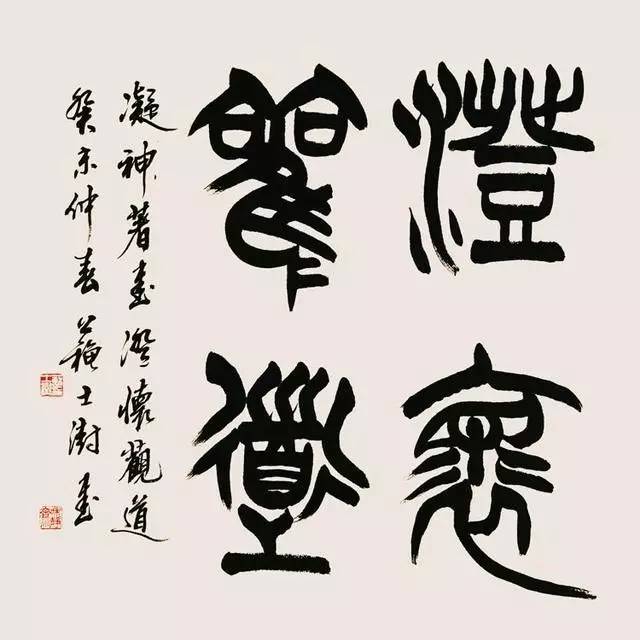 澄懷
觀道
凝神著書澄懷觀道
癸未仲春蘇士澍書